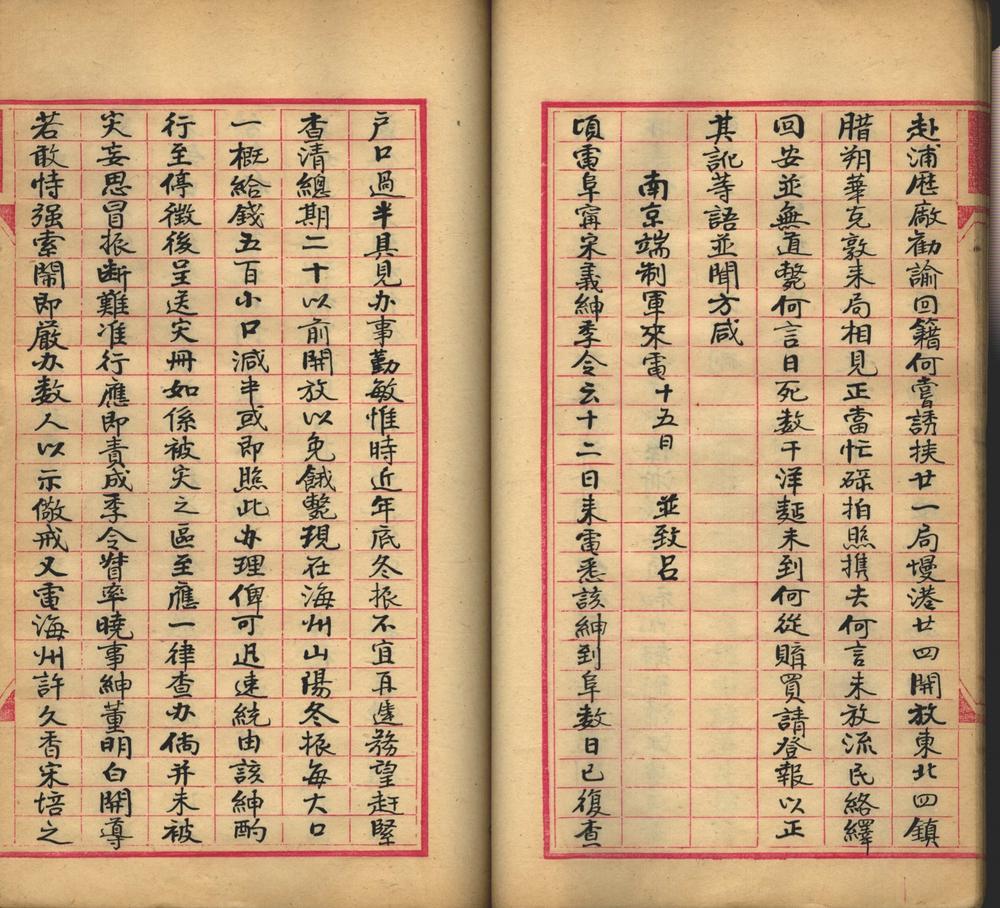 赴浦厯廠勸諭回籍何嘗誘挾廿一局墁港廿四開放東北四鎮
腊朔華克敦来局相見正當忙碌拍照攜去何言未放流民絡繹
回安並無道斃何言日死数千洋麵未到何從購買請登報以正
其訛等語並聞方咸
南京端制軍來電十五日 並致吕
頃電阜寗宋義紳季令云十二日来電悉該紳到阜数日已復查
户口過半具見办事勤敏惟時近年底冬振不宜再遲務望赶緊
查清總期二十以前開放以免餓斃現在海州山陽冬振每大口
一概給錢五百小口減半或即照此办理俾可迅速統由該紳酌
行至停徵後呈送灾冊如係被灾之區至應一律查办倘并未被
灾妄思冒振断難准行應即責成季令督率曉事紳董明白開導
若敢恃强索鬧即嚴办数人以示儆戒又電海州許久香宋培之